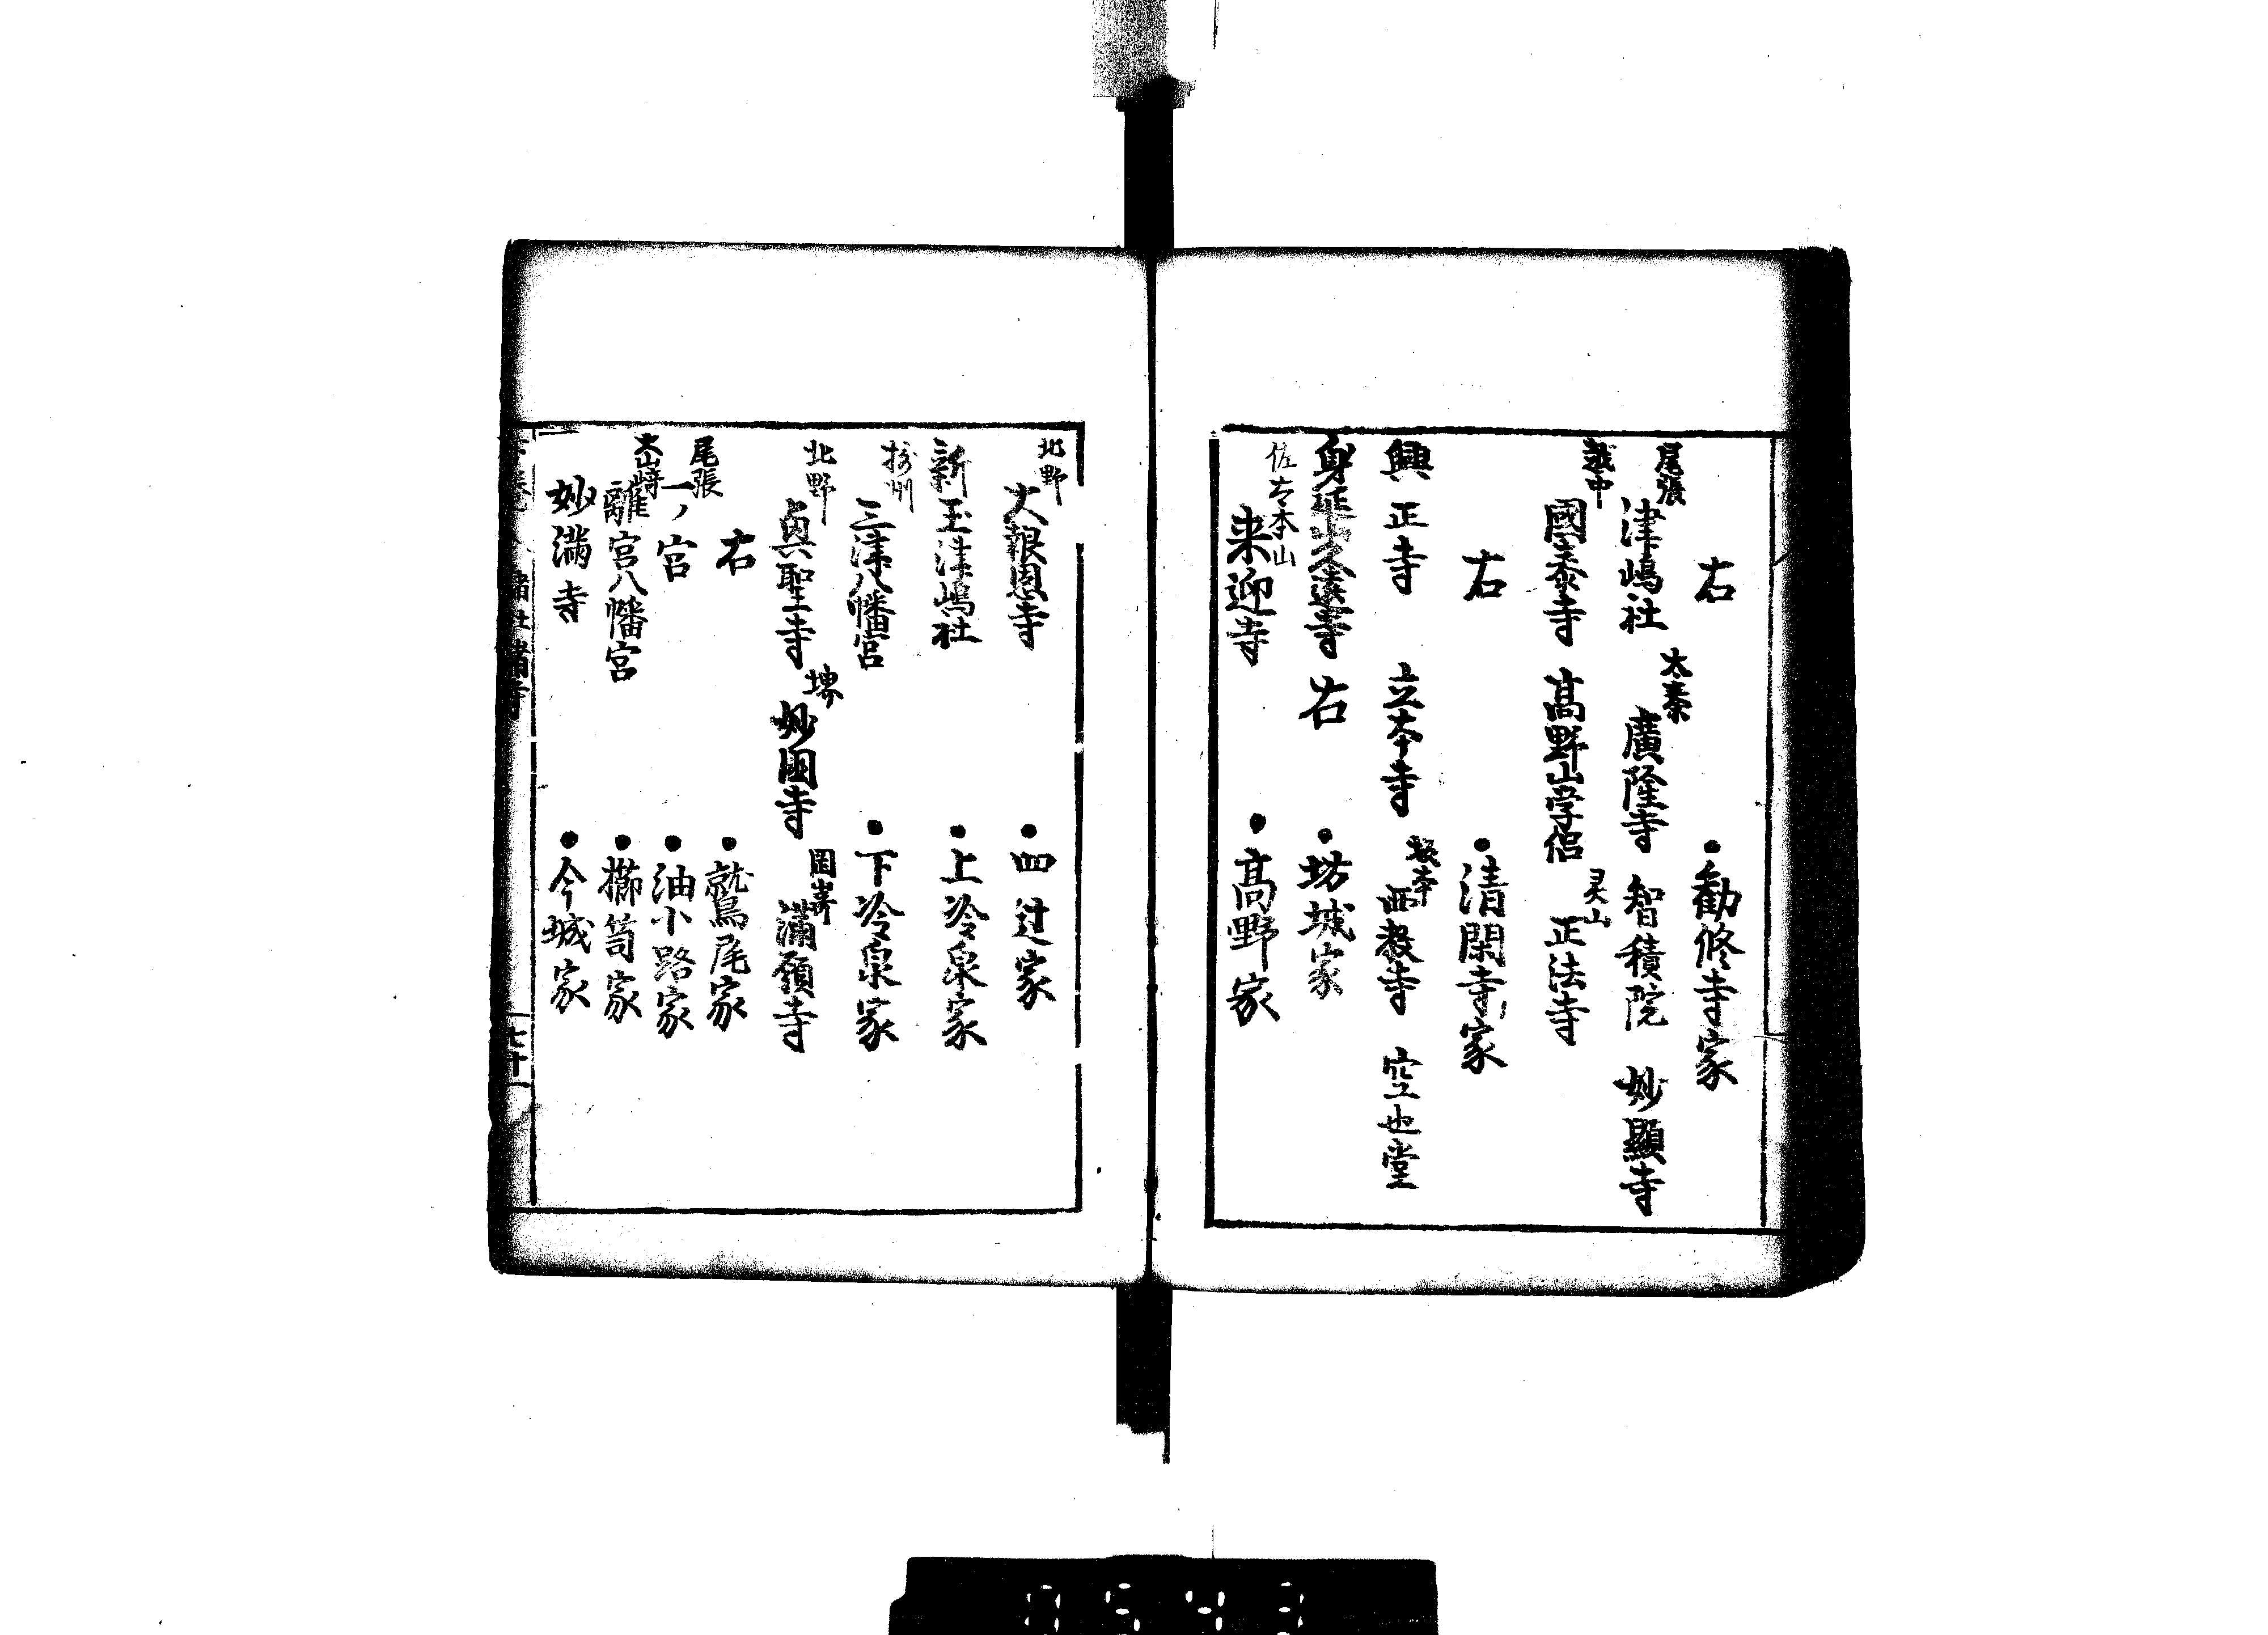 右　●勧修寺家
尾張 津嶋社　太秦 廣隆寺　智積院　妙顯寺
越中 國泰寺　高野山学侶　灵山 正法寺
右　●清閑寺家
興正寺　立本寺　坂本 西教寺　空也堂
身延山久遠寺　右　●坊城家
佐々本山 来迎寺　●高野家
北野 大報恩寺　●四辻家
新玉津嶋社　●上冷泉家
摂州 三津八幡宮　●下冷泉家
北野 貞聖寺　堺 妙国寺　岡嵜 満願寺
右　●鷲尾家
尾張 一ノ宮　●油小路家
山崎 離宮八幡宮　●櫛笥家
妙満寺　●今城家
諸社諸寺
七十一